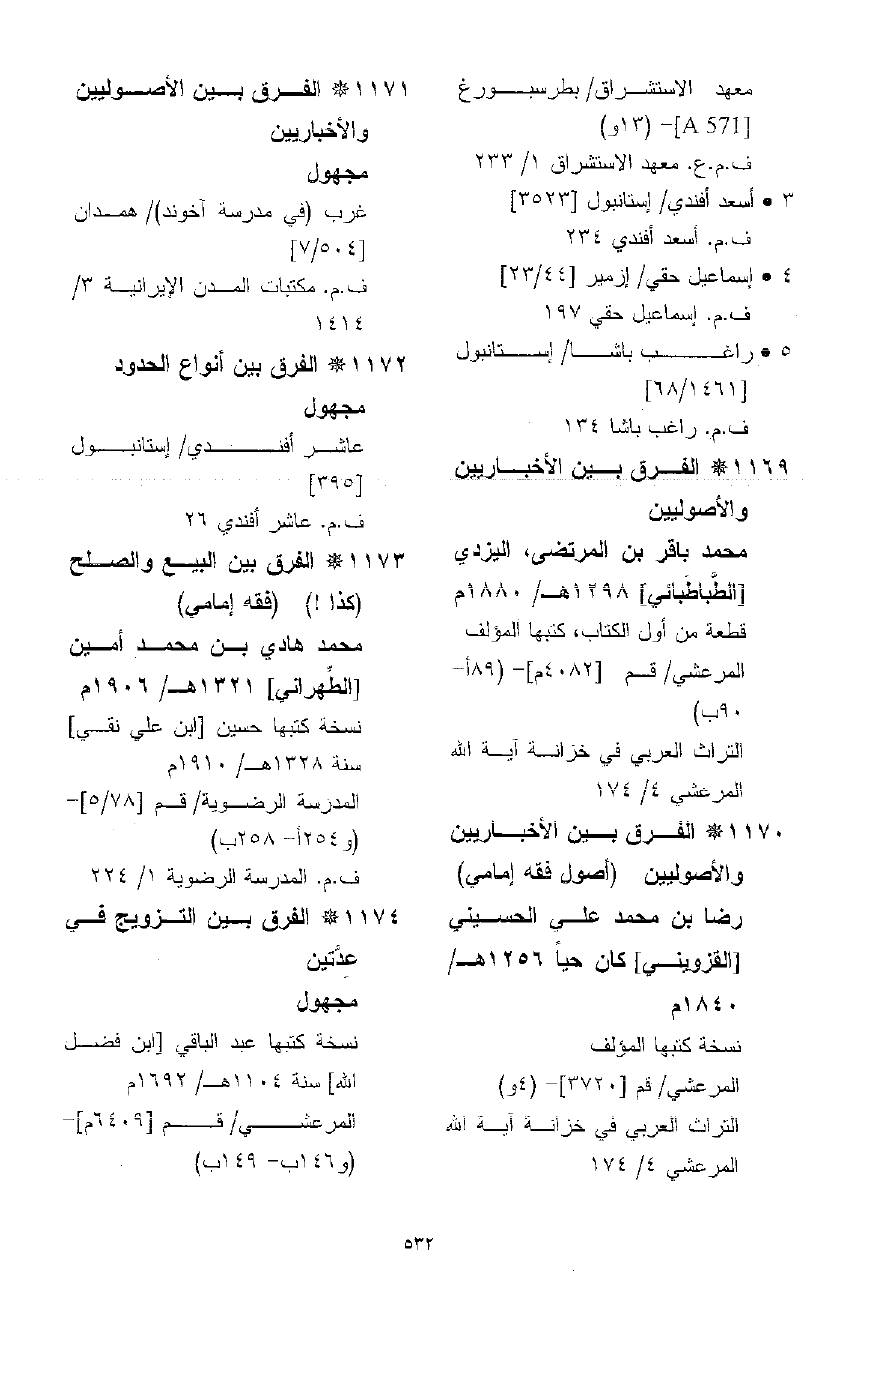 معهد الاستشراق/ بطرسبورغ
[A 571]– (١٣و)
ف.م.ع. معهد الاستشراق ١/ ٢٣٣
٣ • أسعد أفندي/ إستانبول [٣٥٢٣]
ف.م. أسعد أفندي ٢٣٤
٤ • إسماعيل حقي/ إزمير [٢٣/٤٤]
ف.م. إسماعيل حقي ١٩٧
٥ • راغب باشا/ إستانبول
[٦٨/١٤٦١]
ف.م. راغب باشا ١٣٤
١١٦٩ * الفرق بين الأخباريين
والأصوليين
محمد باقر بن المرتضى، اليزدي
[الطَّباطَبائي] ١٢٩٨هـ/ ١٨٨٠م
قطعة من أول الكتاب، كتبها المؤلف
المرعشي/ قم [٤٠٨٢م]– (٨٩أ–
٩٠ب)
التراث العربي في خزانة آية الله
المرعشي ٤/ ١٧٤
١١٧٠ * الفرق بين الأخباريين
والأصوليين (أصول فقه إمامي)
رضا بن محمد علي الحسيني
[القزويني] كان حياً ١٢٥٦هـ/
١٨٤٠م
نسخة كتبها المؤلف
المرعشي/ قم [٣٧٢٠]– (٤و)
التراث العربي في خزانة آية الله
المرعشي ٤/ ١٧٤
١١٧١ * الفرق بين الأصوليين
والأخباريين
مجهول
غرب (في مدرسة آخوند)/ همدان
[٧/٥٠٤]
ف.م. مكتبات المدن الإيرانية ٣/
١٤١٤
١١٧٢ * الفرق بين أنواع الحدود
مجهول
عاشر أفندي/ إستانبول
[٣٩٥]
ف.م. عاشر أفندي ٢٦
١١٧٣ * الفرق بين البيع والصلح
(كذا !) (فقه إمامي)
محمد هادي بن محمد أمين
[الطَّهراني] ١٣٢١هـ/ ١٩٠٦م
نسخة كتبها حسين [ابن علي نقي]
سنة ١٣٢٨هـ/ ١٩١٠م
المدرسة الرضوية/ قم [٥/٧٨]–
(و٢٥٤أ– ٢٥٨ب)
ف.م. المدرسة الرضوية ١/ ٢٢٤
١١٧٤ * الفرق بين التزويج في
عدَّتين
مجهول
نسخة كتبها عبد الباقي [ابن فضل
الله] سنة ١١٠٤هـ/ ١٦٩٢م
المرعشي/ قم [٦٤٠٩م]–
(و١٤٦ب– ١٤٩ب)
٥٣٢